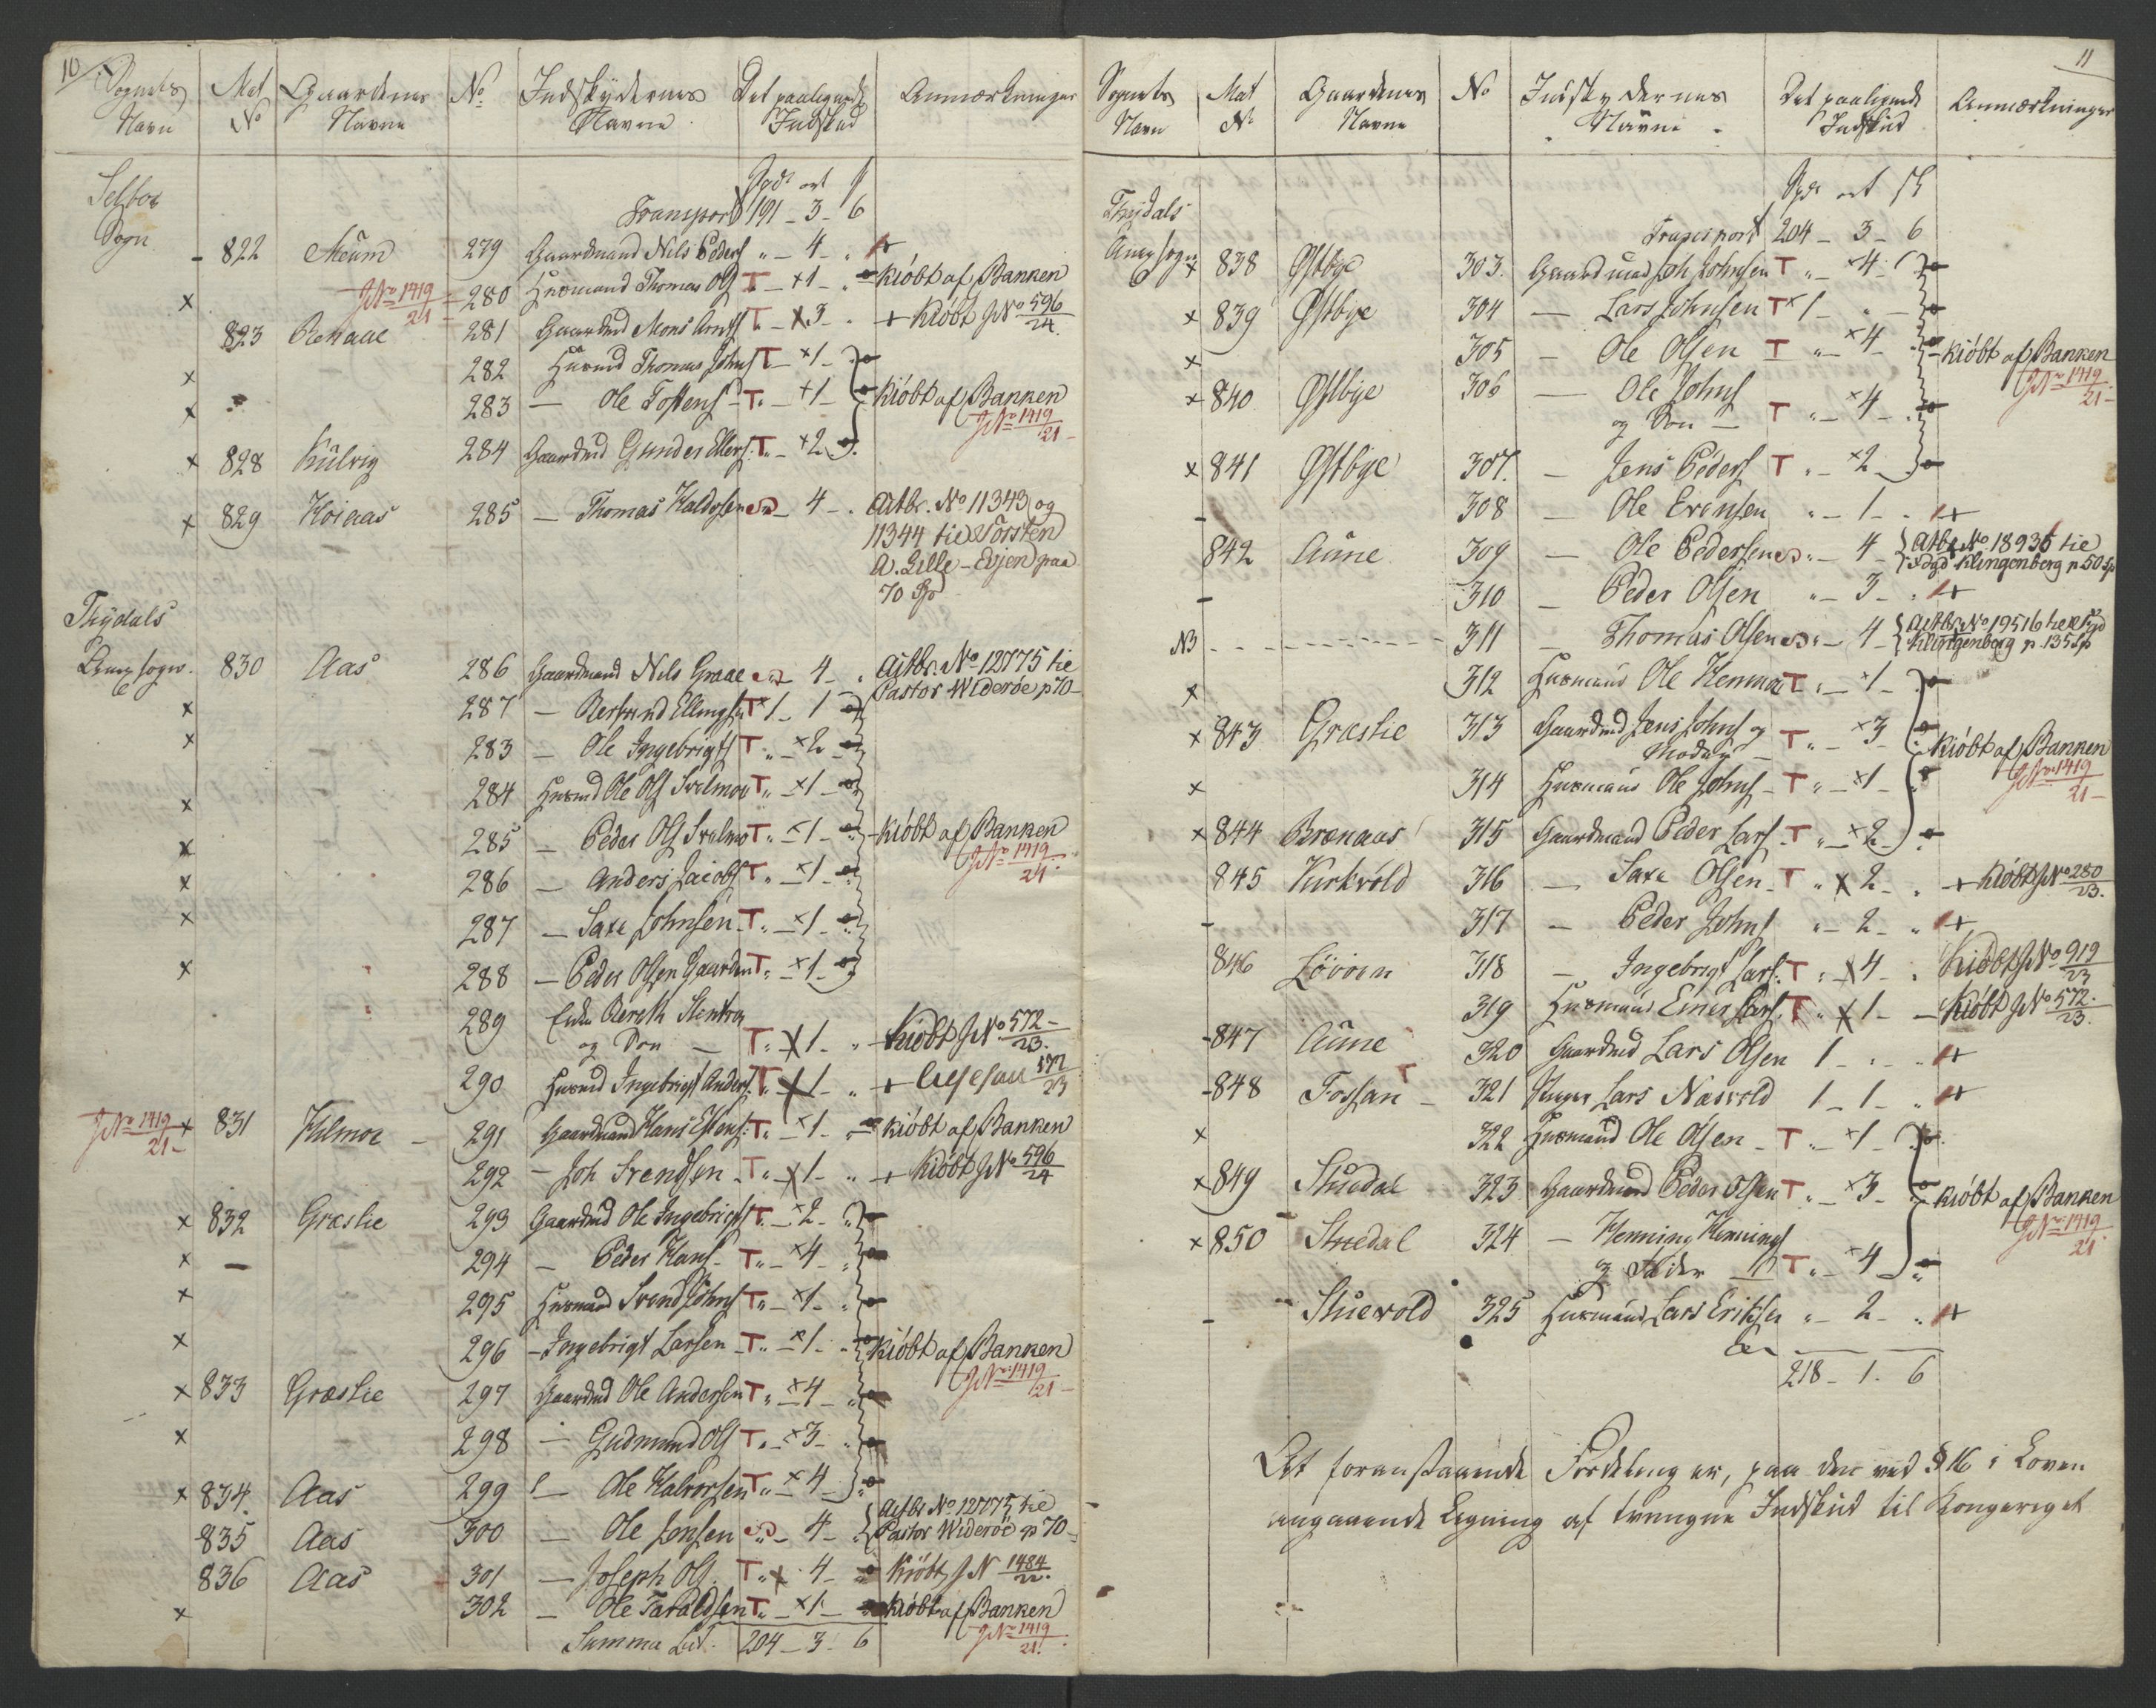 10
Sognets Navn | Mat No | Gaardenes Navne | No | Indskydernes Navne | Det paaliggende Indskud | Anmærkninger
Spd ort ß
Selboe Sogn
Transport 191 - 3 - 6
822 Meum 279 Gaardmand Nils Peders " - 4 - "
x JNo 1419/21 280 Huusmand Thomas Ols T - x1 - " Kiöbt af Banken
823 Renaae 281 Gaardmd Mons Arnts T - x3 - + Kiöbt JNo 596/24.
x 282 Huusmd Thomas Johns T - x1 -
x 283 — Ole Tostens T " - x1 - Kiöbt af Banken
JNo 1419/21
x 828 Kulvig 284 Gaardmd Gunder Ellefs T " - x2
x 829 Hoiaas 285 — Thomas Haldosen - 4 - . Actbr. No 11343 og
11344 til Torsten
A. Lille-Evjen paa
70 Sp
Thydals
Anex sogn. 830 Aas 286 Gaardmand Nils Graae - 4 - " Actbr. No 12775 til
Pastor Widerøe p 70 -
x 287 — Bersvend Ellingsen T x1 - 1
x 283 — Ole Ingebrigts T " - x2
x 284 Huusmd Ole Ols T " - x1
x 285 — Peder Ols T " - x1 - Kiöbt af Banken
JNo 1419/21.
x 286 — Anders Jacobs T " - x1 -
x 287 — Saxe Johnsen T " - x1 -
x 288 — Peder Olsen Gaarden T " - x1 -
289 Enke Bereth
og Søn — T " - x1 - " Kiöbt JNo 572/23.
290 Huusmd Ingebrigt Anders T " - x1 - " + 572/23
JNo 1419/21 x 831 Kilmoe 291 Gaardmand Hans Estens T " - x1 - " Kiöbt af Banken
292 — Joh Svendsen T " - x1 - " + Kiöbt JNo 596/24
x 832 Græslie 293 Gaardmd Ole Ingebrigts T " - x2 - "
x — 294 — Peder Hans T " - x4 - "
x 295 Huusmand Svend Johns T " - x1 - "
x 296 — Ingebrigt Larsen T " - x1 - " Kiöbt af Banken
JNo 1419/21 -
x 833 Græslie 297 Gaardmd Ole Andersen T " - x4 - "
x 298 — Gudmund Ols T " - x3 - "
x 834. Aas 299 — Ole Halvorsen T " - x4 -
835 Aas 300 — Ole Jonsen - 4 - Actbr No 12775 til
Pastor Widerøe p 70 -
836 Aas 301 — Joseph Ols. T " x 4 - Kiöbt JN 1484/22.
x 302 — Ole Taraldsen T " - x1 - Kiöbt af Banken
JNo 1419/21.
Summa Lat. 204 - 3 - 6
11
Sognets Navn | Mat No | Gaardenes Navne | No | Indskydernes Navne | Det paaliggende Indskud | Anmærkninger
Spd ort ß
Thydals
Transport 204 - 3 - 6
Anex sogn x 838 Østbye 303. Gaardmd Joh Johnsen T " - x4 -
x 839 Østbye 304 — Lars Johnsen T x1 - " -
x 305 — Ole Olsen T " - x4 - Kiöbt af Banken
JNo 1419/21 -
x 840 Østbye 306 — Ole Johns
og Søn — T " - x4 -
x 841 Østbye 307. — Jens Peders T " - x2 -
- 308 — Ole Evensen " - 1 - .
842 Aune 309 — Ole Pedersen " - 4 - Actbr No 18935 til
Fogd Klingenberg p 50 Sp
- 310 — Peder Olsen " - 3 - .
NB - - - - - 311 — Thomas Olsen " - 4 - Actbr No 19516 til Fogd
Klingenberg p. 135 Sp
x 312 Huusmand Ole Henmoe T " - x1 -
x 843 Græslie 313 Gaardmd Jens Johns og
Moder — T " - x3 - Kiöbt af Banken
JNo 1419/21 -
x 314 Huusmand Ole Johns - T " - x1 -
x 844 Brænaas 315 Gaardmand Peder Lars - T " - x2 -
845 Kirkvold 316 — Saxe Olsen T " x 2 - " + Kiöbt JNo 280/23.
- 317 — Peder Johns " - 2 - "
846 Lövöen 318 — Ingebrigt Lars. T " - x4 - . Kiöbt JNo 919/23
319 Huusmand Einer Lars. T " x1 - - Kiöbt JNo 572/23.
- 847 Aune 320 Gaardmd Lars Olsen 1 - " - "
- 848 Fossan - 321 Lars Nasvold 1 - 1 - "
x 322 Huusmand Ole Olsen - T " - x1 -
x 849 Stuedal 323 Gaardmand Peder Olsen T " - x3 - Kiöbt af Banken
JNo 1419/21
x 850 Stuedal 324 — Henning Hennings
og Fader — T " - x4 -
- Stuevold 325 Huusmand Lars Eriksen " - 2 - "
218 - 1 - 6
At foranstaaende Fordeling er, paa den ved § 16 i Loven
angaaende Ligning af tvungne Indskud til Kongeriget